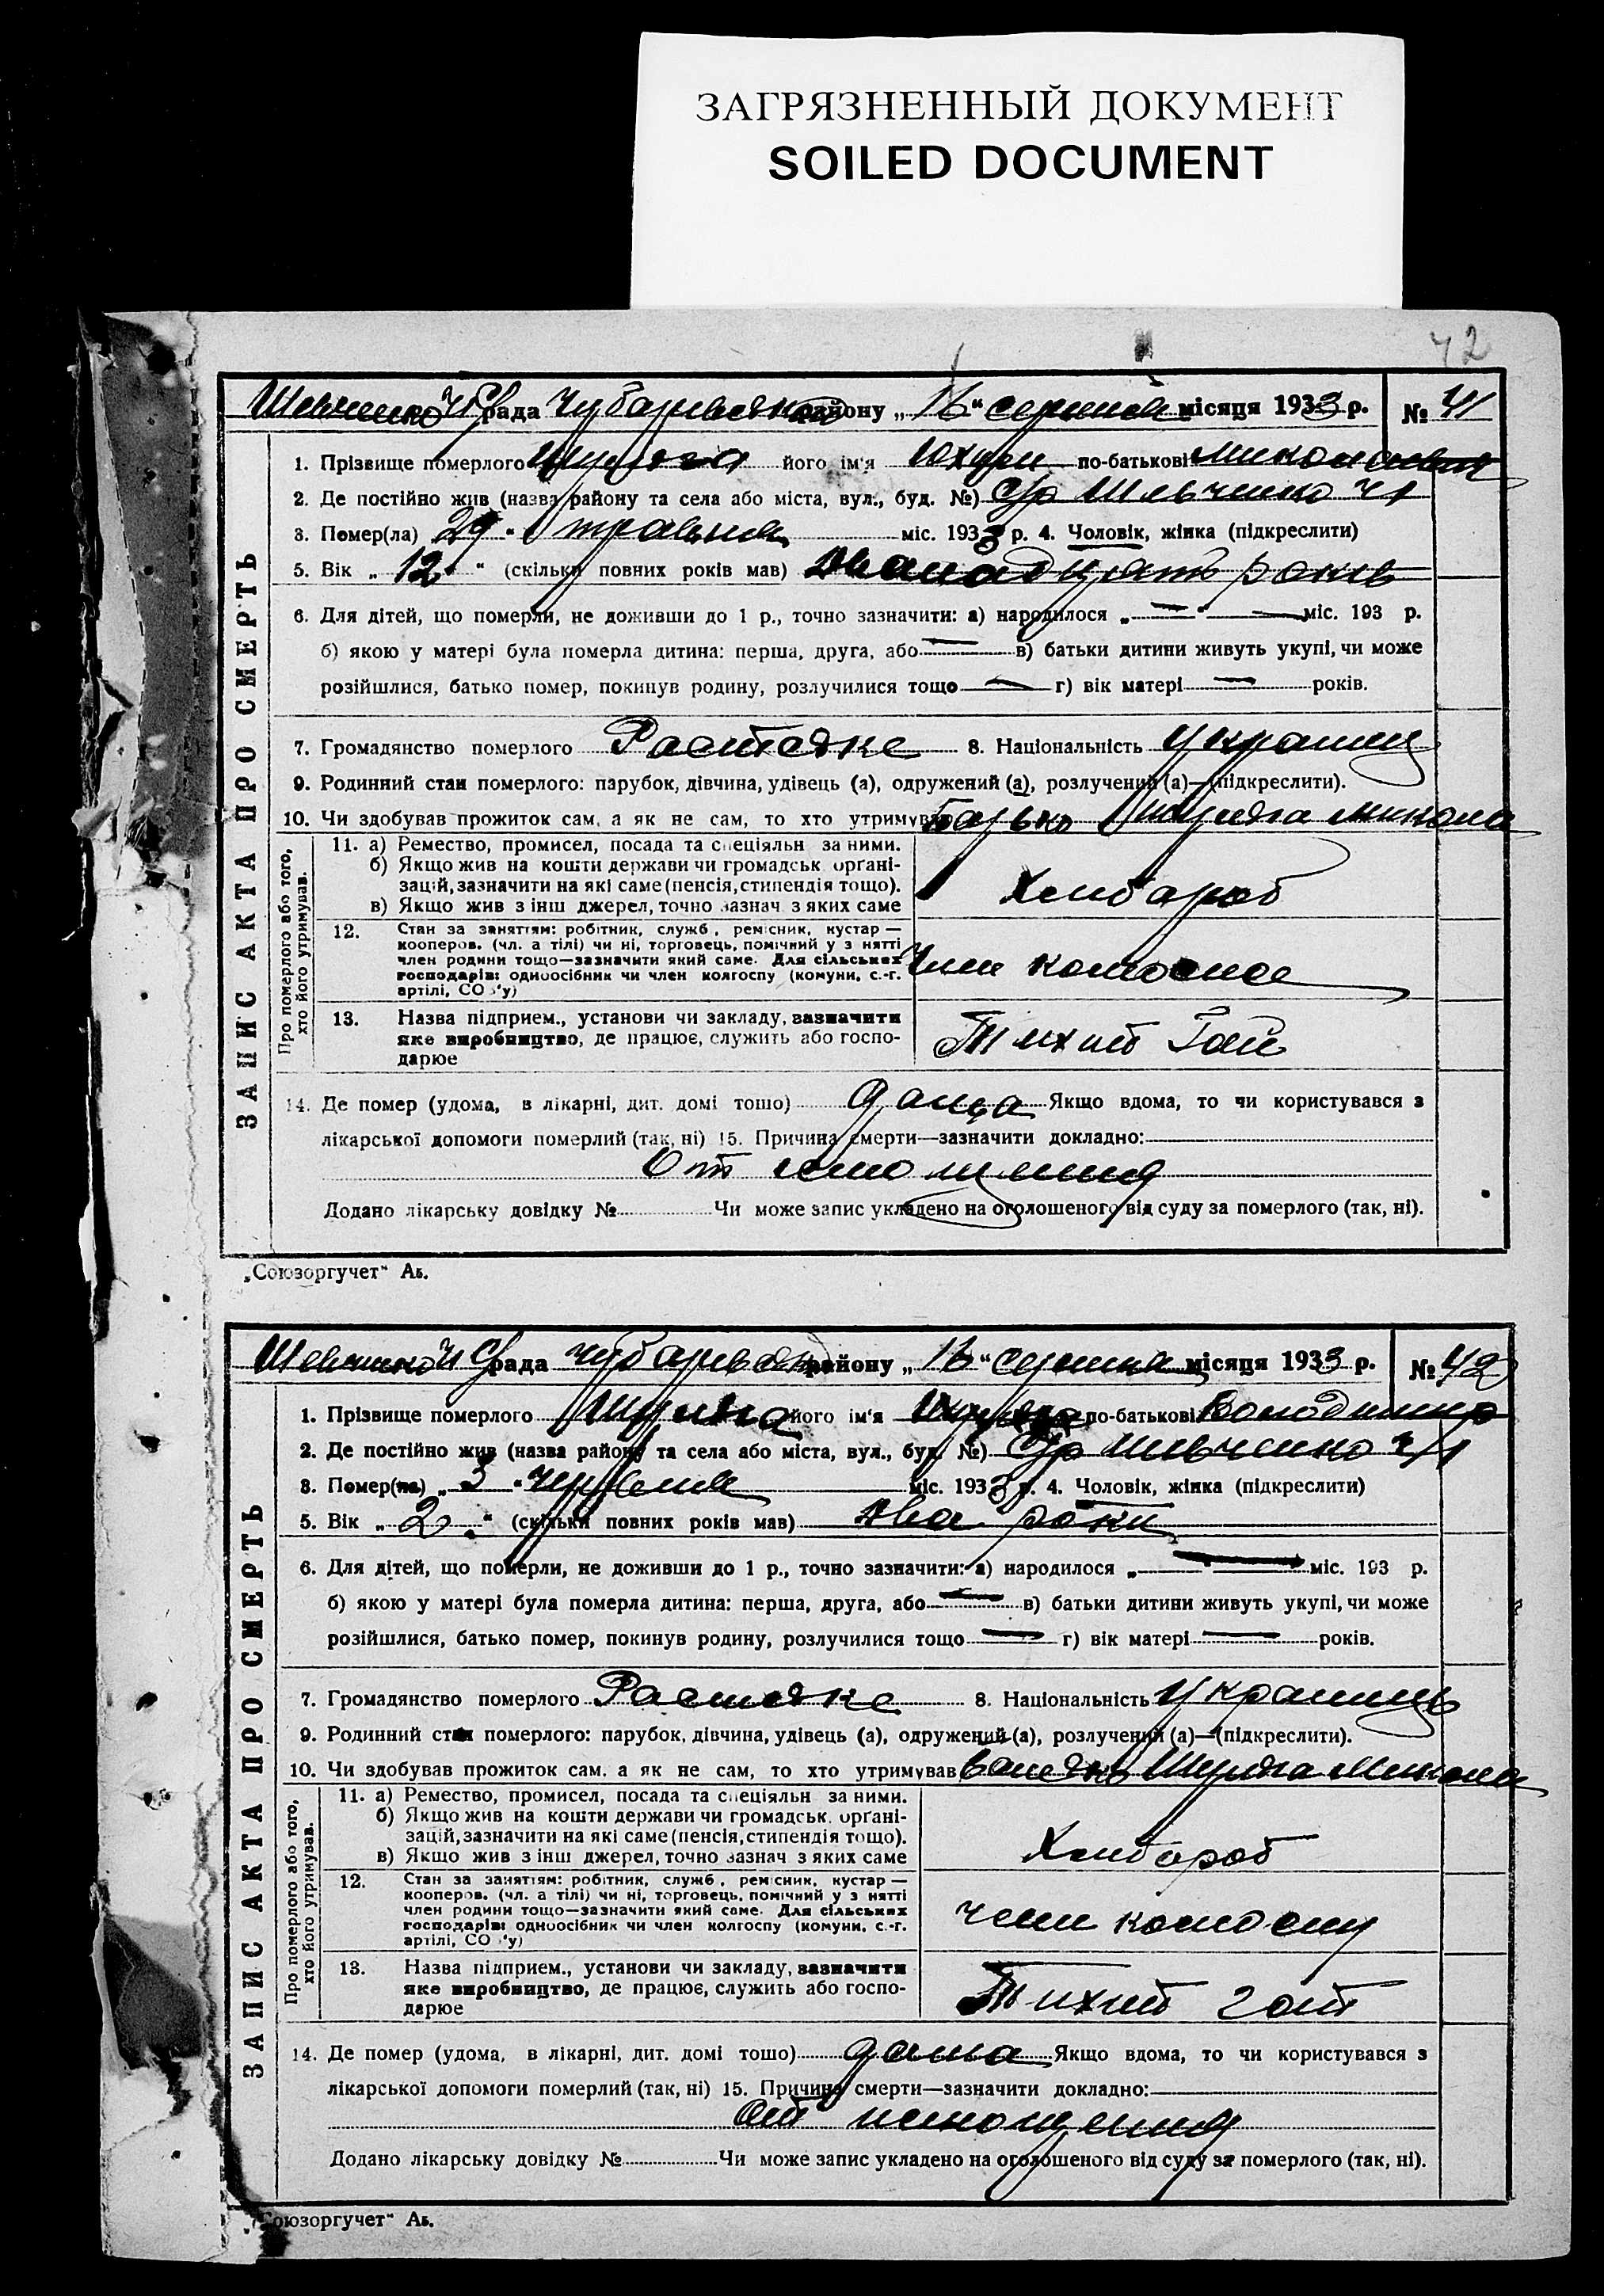 ЗАГРЯЗНЕННЫЙ ДОКУМЕНТ
SOILED DOCUMENT
42
рада району „ серпня місяця 1933 р. № 41
ЗАПИС АКТА ПРО СМЕРТЬ
1. Прізвище померлого його ім'я по-батькові
2. Де постійно жив (назва району та села або міста, вул., буд. №) с/р Шевченко
3. Помер(ла) 29 " травня міс. 1933 р. 4. Чоловік, жінка (підкреслити)
5. Вік „ 12 " (скільки повних років мав) Дванадцять років
6. Для дітей, що померли, не доживши до 1 р., точно зазначити: а) народилося „ — " — міс. 193 р.
б) якою у матері була померла дитина: перша, друга, або — в) батьки дитини живуть укупі, чи може
розійшлися, батько помер, покинув родину, розлучилися тощо — г) вік матері — років.
7. Громадянство померлого 8. Національність Українец
9. Родинний стан померлого: парубок, дівчина, удівець (а), одружений (а), розлучений (а)—(підкреслити).
10. Чи здобував прожиток сам, а як не сам, то хто утримував Микола
Про померлого або того,
хто його утримував.
11. а) Ремество, промисел, посада та спеціяльн за ними.
б) Якщо жив на кошти держави чи громадськ. орґані-
зацій, зазначити на які саме (пенсія, стипендія тощо).
в) Якщо жив з інш джерел, точно зазнач з яких саме
Хлибароб
12. Стан за заняттям: робітник, служб., ремісник, кустар —
кооперов. (чл. а тілі) чи ні, торговець, помічний у з нятті
член родини тощо—зазначити який саме. Для сільських
господарів: одноосібник чи член колгоспу (комуни, с.-г.
артілі, СО 'у)
Член
13. Назва підприєм., установи чи закладу, зазначити
яке виробництво, де працює, служить або госпо-
дарює
Тихий Гай
14. Де помер (удома, в лікарні, дит. домі тощо) Якщо вдома, то чи користувався з
лікарської допомоги померлий (так, ні) 15. Причина смерти—зазначити докладно:
От истощения
Додано лікарську довідку № Чи може запис укладено на оголошеного від суду за померлого (так, ні).
„Союзоргучет" Аь.
рада району „ серпня місяця 1933 р. № 42
ЗАПИС АКТА ПРО СМЕРТЬ
1. Прізвище померлого його ім'я по-батькові
2. Де постійно жив (назва району та села або міста, вул., буд. №) с/р Шевченко
3. Помер(ла) „ 3 " червня міс. 1933 р. 4. Чоловік, жінка (підкреслити)
5. Вік „ 2 " (скільки повних років мав) Два роки
6. Для дітей, що померли, не доживши до 1 р., точно зазначити: а) народилося „ — " — міс. 193 р.
б) якою у матері була померла дитина: перша, друга, або — в) батьки дитини живуть укупі, чи може
розійшлися, батько помер, покинув родину, розлучилися тощо — г) вік матері — років.
7. Громадянство померлого 8. Національність Українець
9. Родинний стан померлого: парубок, дівчина, удівець (а), одружений (а), розлучений (а)—(підкреслити).
10. Чи здобував прожиток сам, а як не сам, то хто утримував Микола
Про померлого або того,
хто його утримував.
11. а) Ремество, промисел, посада та спеціяльн за ними.
б) Якщо жив на кошти держави чи громадськ. орґані-
зацій, зазначити на які саме (пенсія, стипендія тощо).
в) Якщо жив з інш джерел, точно зазнач з яких саме
Хлибороб
12. Стан за заняттям: робітник, служб., ремісник, кустар —
кооперов. (чл. а тілі) чи ні, торговець, помічний у з нятті
член родини тощо—зазначити який саме. Для сільських
господарів: одноосібник чи член колгоспу (комуни, с.-г.
артілі, СО 'у)
член
13. Назва підприєм., установи чи закладу, зазначити
яке виробництво, де працює, служить або госпо-
дарює
Тихий гай
14. Де помер (удома, в лікарні, дит. домі тощо) Якщо вдома, то чи користувався з
лікарської допомоги померлий (так, ні) 15. Причина смерти—зазначити докладно:
От истощения
Додано лікарську довідку № Чи може запис укладено на оголошеного від суду за померлого (так, ні).
„Союзоргучет" Аь.